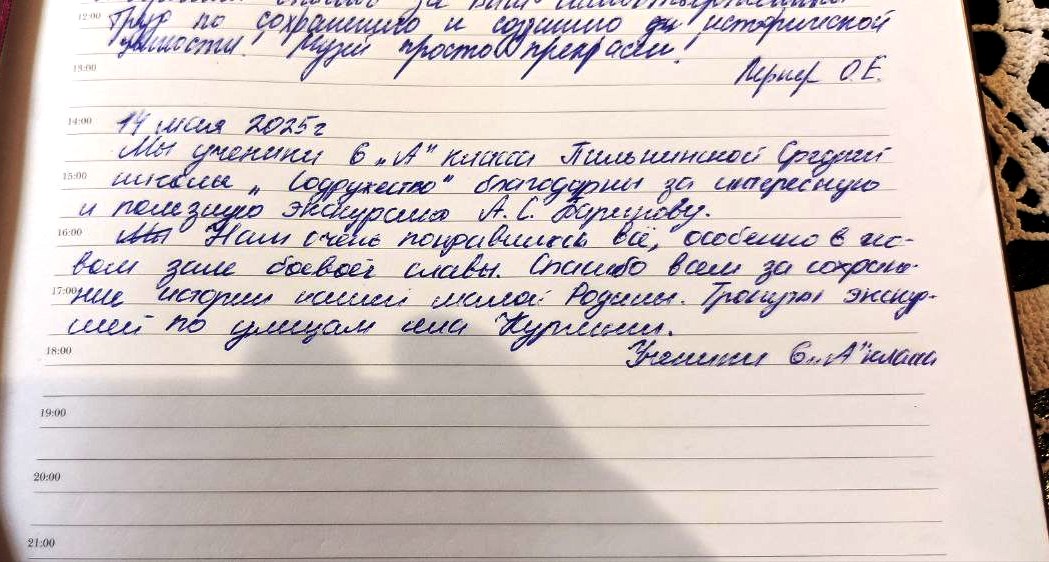 за
12:00
труд по сохранению и созданию исторической
ценности. Музей просто прекрасен.
13:00
О.Е.
14:00
14 мая 2025г
Мы ученики 6 „А" класса Пильнинской Средней
15:00
школы „Содружество" благодарны за интересную
и полезную экскурсию А. С.
16:00
Мы Нам очень понравилось всё, особенно в но-
вом зале боевой славы. Спасибо всем за сохране-
17:00
ние истории нашей малой Родины. Тронуты экскур-
сией по улицам села Курмыш.
18:00
Ученики 6 „А" класса
19:00
20:00
21:00